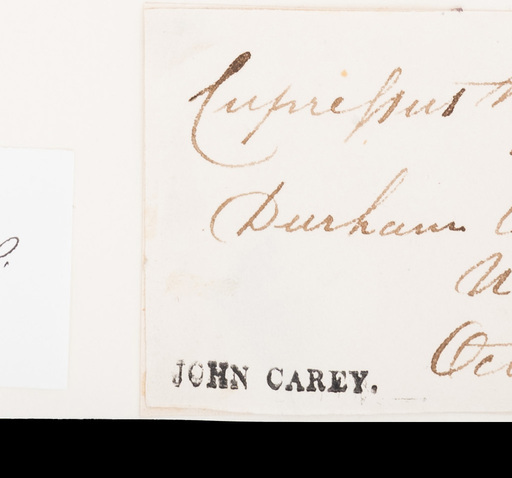 Cupressus
Durham
JOHN CAREY.